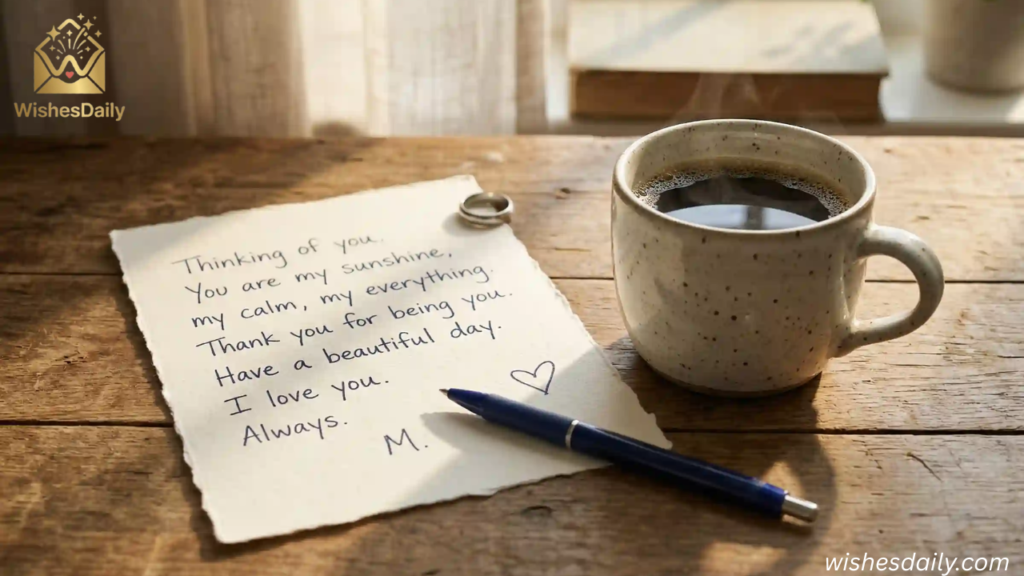 WishesDaily
Thinking of you.
You are my sunshine,
my calm, my everything.
Thank you for being you.
Have a beautiful day.
I love you.
Always.
M.
wishesdaily.com